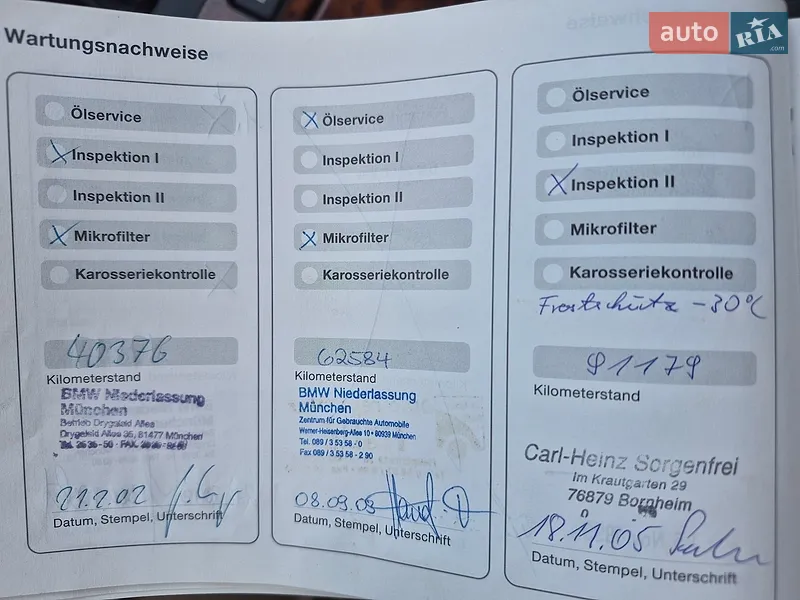 auto RIA .com
Wartungsnachweise
Ölservice
Inspektion I
Inspektion II
Mikrofilter
Karosseriekontrolle
40376
Kilometerstand
BMW Niederlassung
München
Betrieb Drygalski Allee
Drygalski Allee 35, 81477 München
21.2.02
Datum, Stempel, Unterschrift
Ölservice
Inspektion I
Inspektion II
Mikrofilter
Karosseriekontrolle
62584
Kilometerstand
BMW Niederlassung
München
Zentrum für Gebrauchte Automobile
Werner-Heisenberg-Allee 10 • 80939 München
Tel. 089 / 3 53 58 - 0
Fax 089 / 3 53 58 - 2 90
08.09.03
Datum, Stempel, Unterschrift
Ölservice
Inspektion I
Inspektion II
Mikrofilter
Karosseriekontrolle
Frostschutz -30°C
91179
Kilometerstand
Carl-Heinz Sorgenfrei
Im Krautgarten 29
76879 Bornheim
18.11.05
Datum, Stempel, Unterschrift